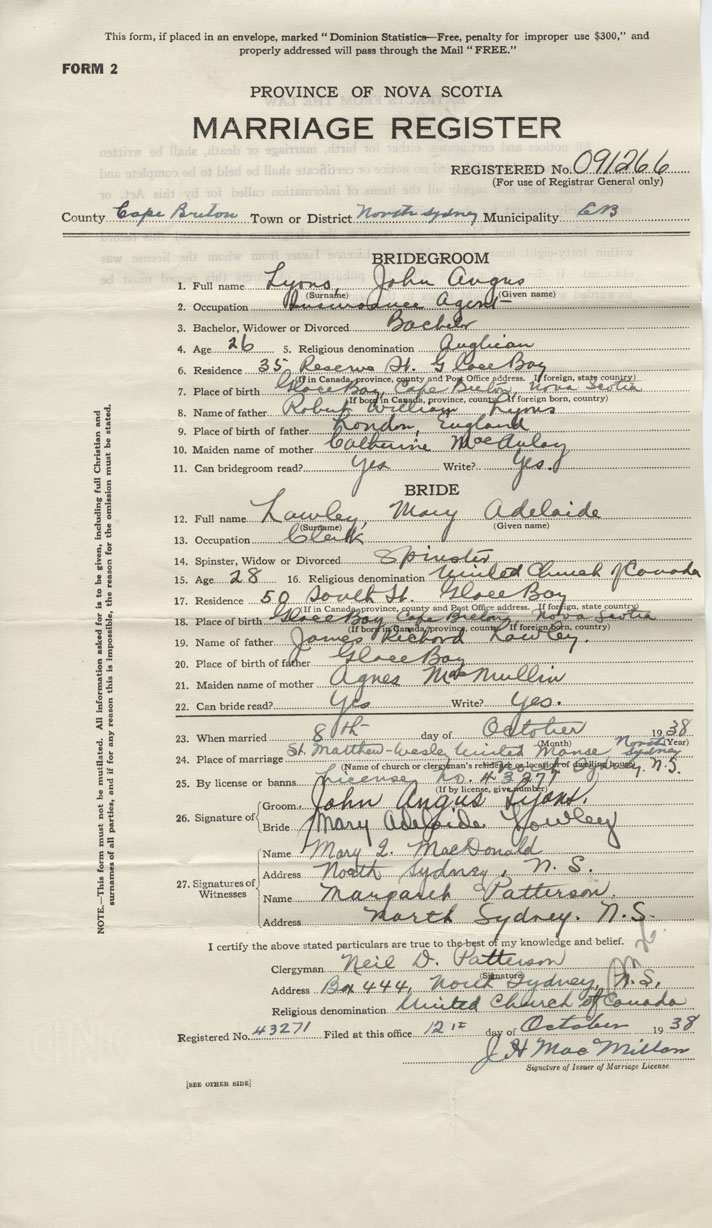 This form, if placed in an envelope, marked "Dominion Statistics—Free, penalty for improper use $300," and
properly addressed will pass through the Mail "FREE."
FORM 2
PROVINCE OF NOVA SCOTIA
MARRIAGE REGISTER
REGISTERED No. 091266
(For use of Registrar General only)
County Cape Breton Town or District North Sydney Municipality CB
BRIDEGROOM
1. Full name Lyons, John Angus
(Surname) (Given name)
2. Occupation Insurance Agent
3. Bachelor, Widower or Divorced Bachelor
4. Age 26 5. Religious denomination Anglican
6. Residence 35 Reserve St. Glace Bay
(If in Canada, province, county and Post Office address. If foreign, state country)
7. Place of birth Glace Bay, Cape Breton, Nova Scotia
(If born in Canada, province, county. If foreign born, country)
8. Name of father Robert William Lyons
9. Place of birth of father London, England
10. Maiden name of mother Catherine MacAulay
11. Can bridegroom read? Yes Write? Yes.
BRIDE
12. Full name Lawley, Mary Adelaide
(Surname) (Given name)
13. Occupation Clerk
14. Spinster, Widow or Divorced Spinster
15. Age 28 16. Religious denomination United Church of Canada
17. Residence 50 South St. Glace Bay
(If in Canada, province, county and Post Office address. If foreign, state country)
18. Place of birth Glace Bay, Cape Breton, Nova Scotia
(If born in Canada, province, county. If foreign born, country)
19. Name of father James Richard Lawley.
20. Place of birth of father Glace Bay
21. Maiden name of mother Agnes MacMullin
22. Can bride read? Yes Write? Yes.
23. When married 8th day of October 1938
(Month) (Year)
24. Place of marriage St. Matthew-Wesley United Manse North Sydney
(Name of church or clergyman's residence or location of dwelling house) Sydney, N.S.
25. By license or banns License no. 43271
(If by license, give number)
26. Signature of
Groom John Angus Lyons.
Bride Mary Adelaide Lawley
27. Signatures of Witnesses
Name Mary L. MacDonald
Address North Sydney, N.S.
Name Margaret Patterson
Address North Sydney. N.S.
I certify the above stated particulars are true to the best of my knowledge and belief.
Clergyman Neil D. Patterson
(Signature)
Address Box 444, North Sydney, N.S.
Religious denomination United Church of Canada
Registered No. 43271 Filed at this office 12th day of October 1938
J H MacMillan
Signature of Issuer of Marriage License.
[SEE OTHER SIDE]
NOTE.—This form must not be mutilated. All information asked for is to be given, including full Christian and
surnames of all parties, and if for any reason this is impossible, the reason for the omission must be stated.